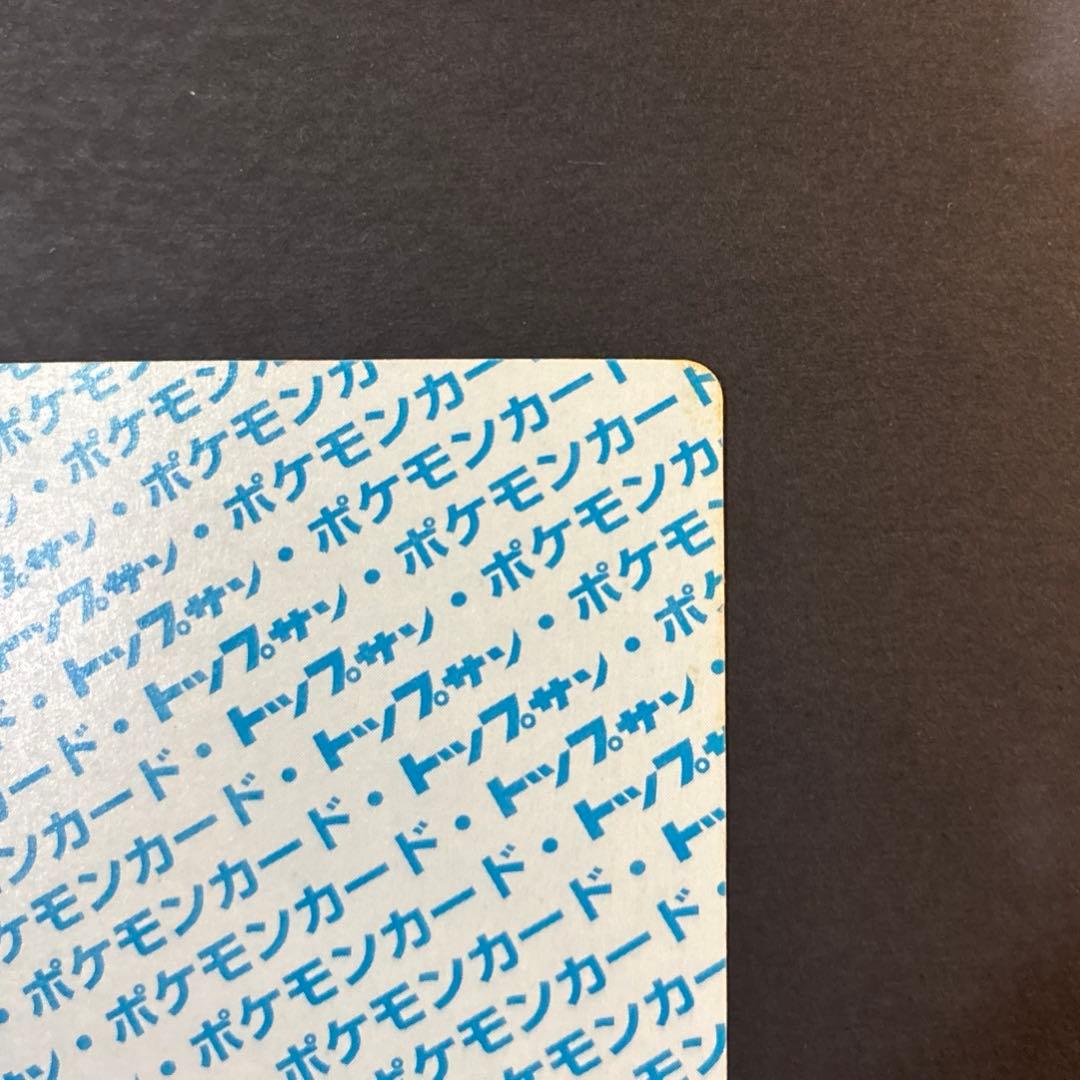 ポケモン
・ポケモンカ
・ポケモンカ
トップサン・ポケモンカー
・トップサン・ポケモンカー
・トップサン・ポケモンカード
ード・トップサン・ポケモンカ
カード・トップサン・ポケモン
ンカード・トップサン・ポケ
ケモンカード・トップサン・
・ポケモンカード・トップ
・ポケモンカード・トッ
・ポケモンカード・
ポケモンカード
ポケモンカー
ケモン